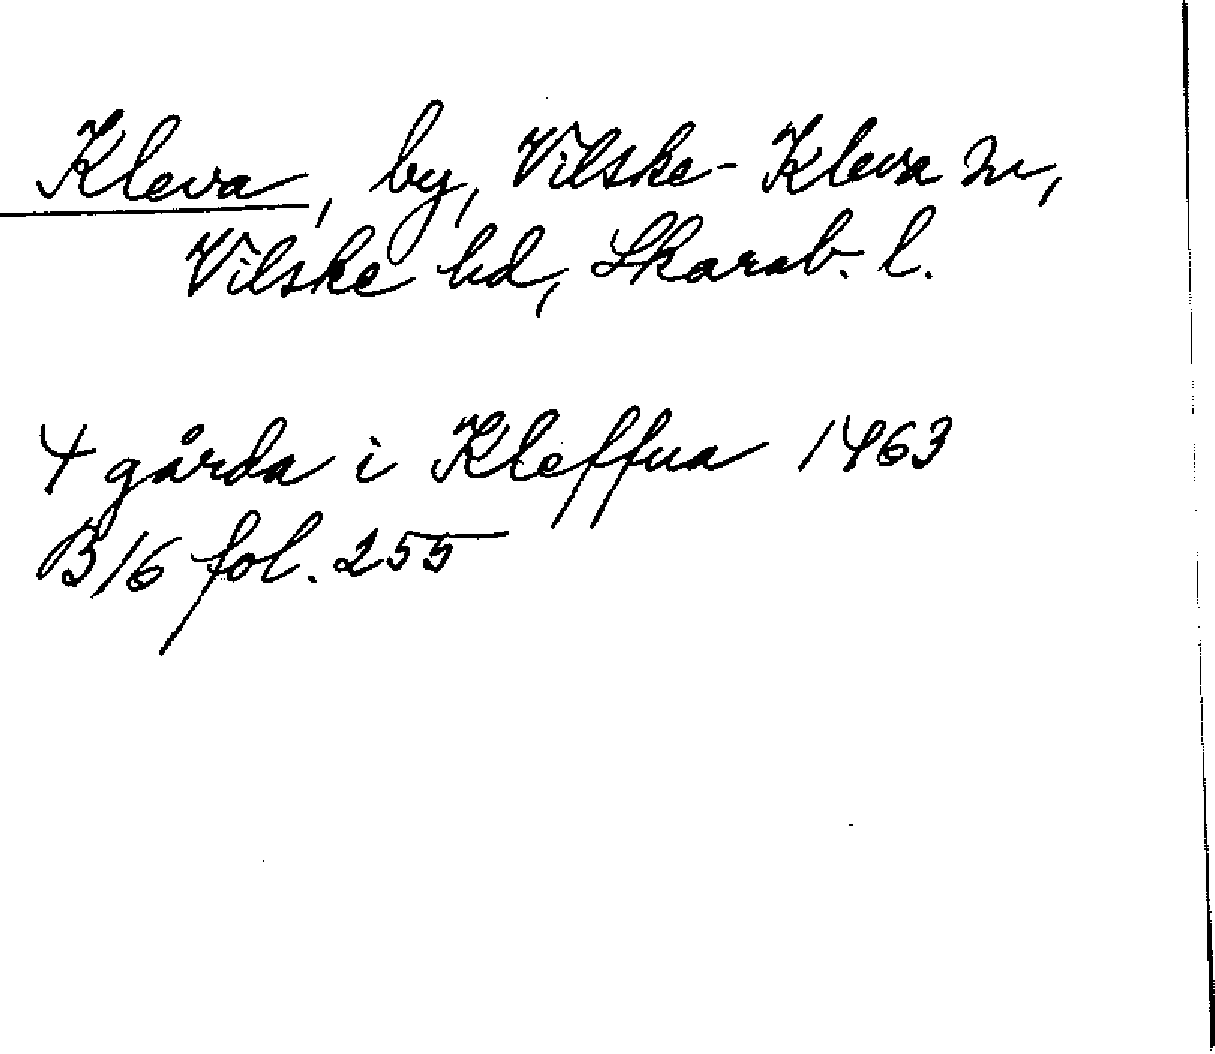 Kleva, by, Vilske-Kleva sn,
Vilske hd, Skarab. l.
4 gårda i Kleffua 1463
B 16 fol. 255